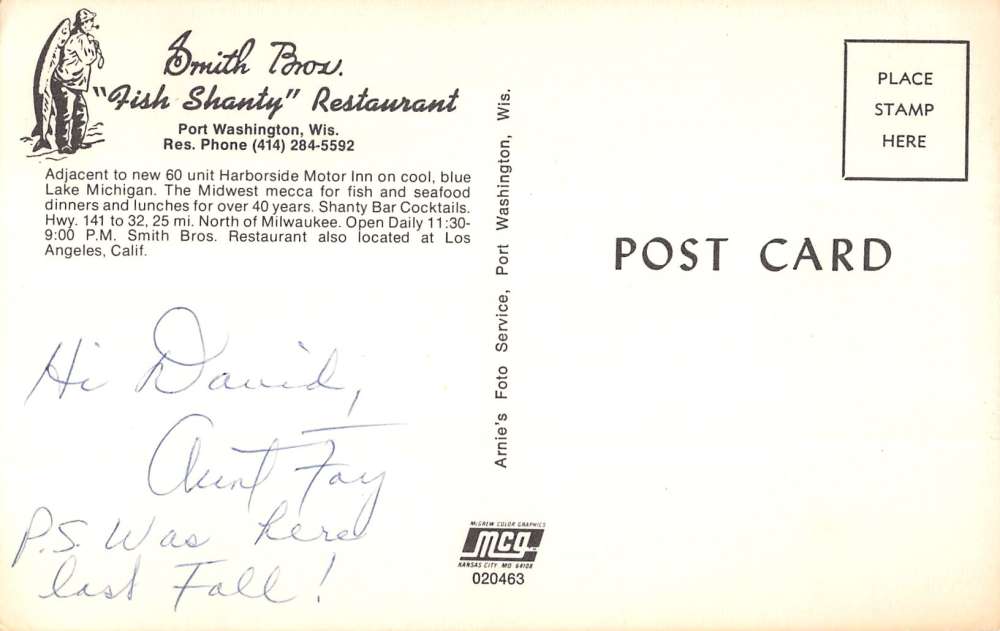 Smith Bros.
"Fish Shanty" Restaurant
Port Washington, Wis.
Res. Phone (414) 284-5592
Adjacent to new 60 unit Harborside Motor Inn on cool, blue
Lake Michigan. The Midwest mecca for fish and seafood
dinners and lunches for over 40 years. Shanty Bar Cocktails.
Hwy. 141 to 32, 25 mi. North of Milwaukee. Open Daily 11:30-
9:00 P.M. Smith Bros. Restaurant also located at Los
Angeles, Calif.
Hi David,
Aunt Fay
P.S. Was here
last Fall!
Arnie's Foto Service, Port Washington, Wis.
McGREW COLOR GRAPHICS
mcg
KANSAS CITY MO 64108
020463
PLACE
STAMP
HERE
POST CARD